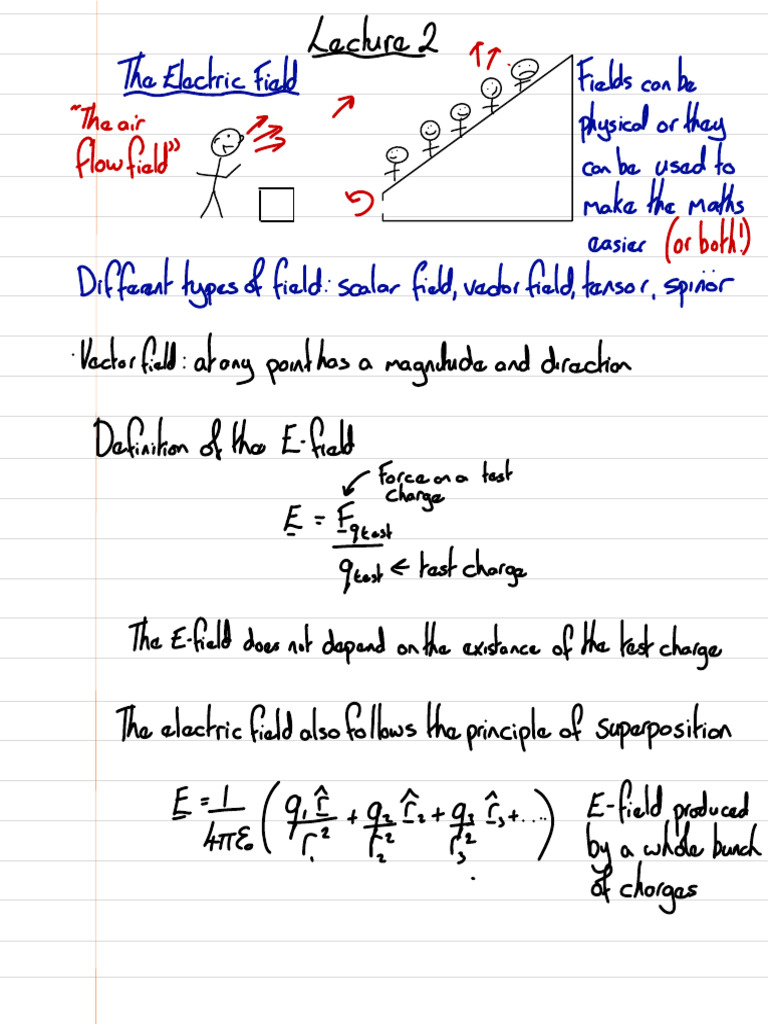 Lecture 2
The Electric Field
"The air
flow field"
Fields can be
physical or they
can be used to
make the maths
easier (or both!)
Different types of field: scalar field, vector field, tensor, spinör
Vector field: at any point has a magnitude and direction
Definition of the E-field
Force on a test
charge
E = F_qtest
q_test ← test charge
The E-field does not depend on the existence of the test charge
The electric field also follows the principle of superposition
E = 1/4πε₀ (q₁r̂/r₁² + q₂/r₂² r̂₂ + q₃/r₃² r̂₃ + ....)
E-field produced
by a whole bunch
of charges